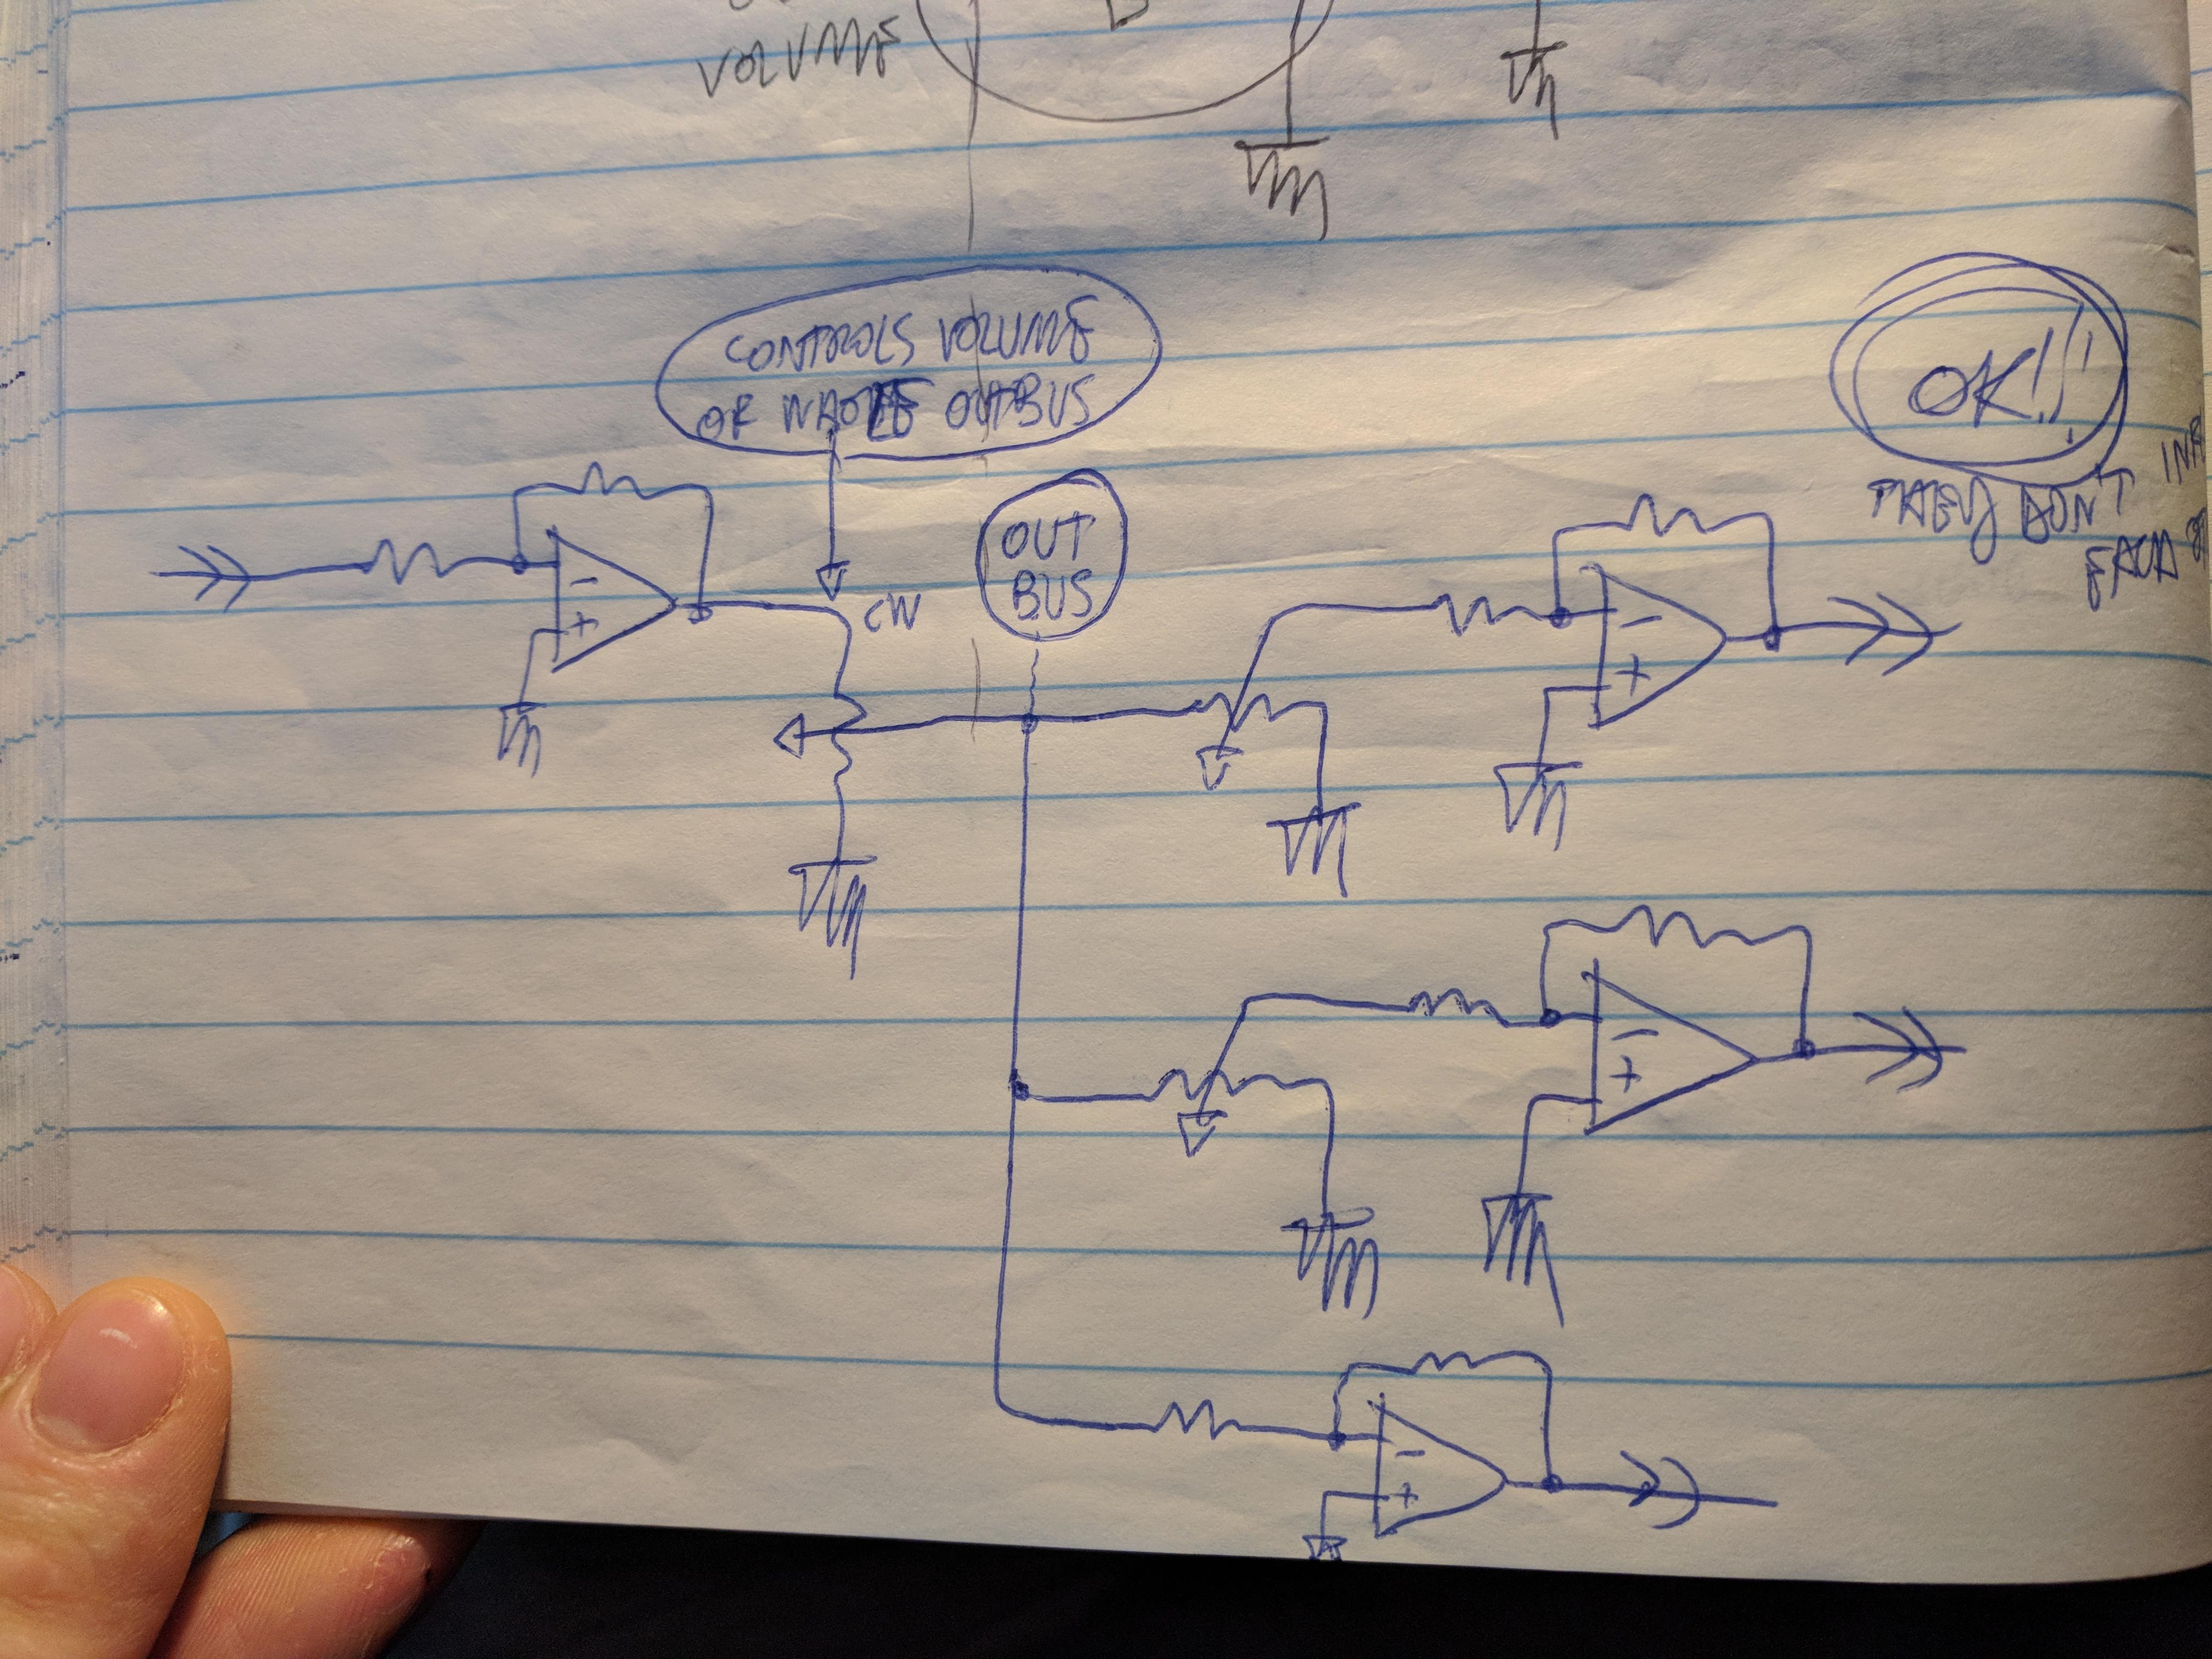 VOLUME
CONTROLS VOLUME
OF WHOLE OUTBUS
OK!!!
THEY DON'T
EACH
OUT
BUS
CW
-
+
-
+
-
+
-
+